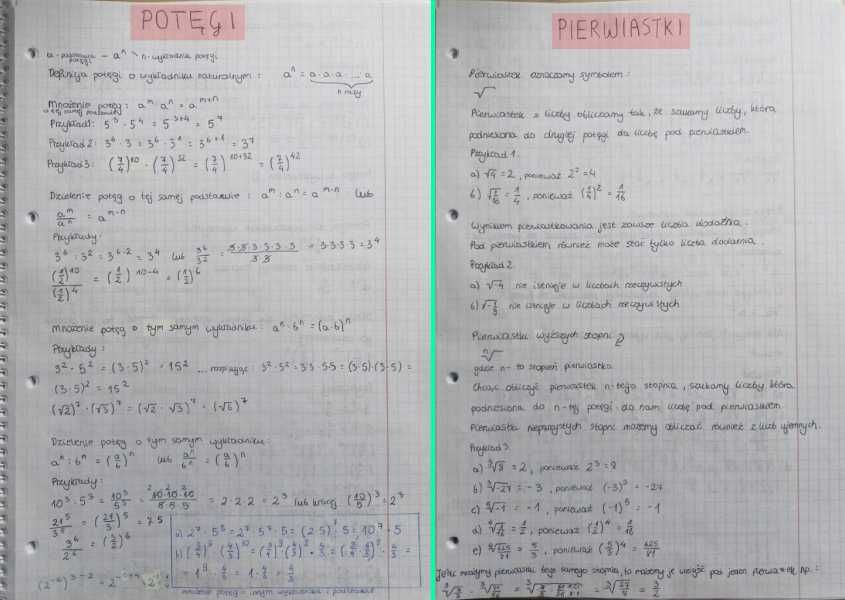 POTĘGI
a - podstawa potęgi – aⁿ n - wykładnik potęgi
Definicja potęgi o wykładniku naturalnym : aⁿ = a·a·a·...·a
n razy
Mnożenie potęg : aᵐ·aⁿ = aᵐ⁺ⁿ
o tej samej podstawie
Przykład1: 5³·5⁴ = 5³⁺⁴ = 5⁷
Przykład 2: 3⁶·3 = 3⁶·3¹ = 3⁶⁺¹ = 3⁷
Przykład 3: (7/4)¹⁰·(7/4)³² = (7/4)¹⁰⁺³² = (7/4)⁴²
Dzielenie potęg o tej samej podstawie : aᵐ : aⁿ = aᵐ⁻ⁿ lub
aᵐ/aⁿ = aᵐ⁻ⁿ
Przykłady:
3⁶ : 3² = 3⁶⁻² = 3⁴ lub 3⁶/3² = 3·3·3·3·3·3/3·3 = 3·3·3·3 = 3⁴
(1/2)¹⁰/(1/2)⁴ = (1/2)¹⁰⁻⁴ = (1/2)⁶
Mnożenie potęg o tym samym wykładniku : aⁿ·bⁿ = (a·b)ⁿ
Przykłady :
3²·5² = (3·5)² = 15² ... rozpisując : 3²·5² = 3·3·5·5 = (3·5)·(3·5) =
(3·5)² = 15²
(√2)⁷·(√3)⁷ = (√2·√3)⁷ = (√6)⁷
Dzielenie potęg o tym samym wykładniku:
aⁿ : bⁿ = (a/b)ⁿ lub aⁿ/bⁿ = (a/b)ⁿ
Przykłady :
10³ : 5³ = 10³/5³ = 10·10·10/5·5·5 = 2·2·2 = 2³ lub krócej (10/5)³ = 2³
21⁵/3⁵ = (21/3)⁵ = 7⁵
3⁶/2⁶ = (3/2)⁶
a) 2⁷·5⁸ = 2⁷·5⁷·5 = (2·5)⁷·5 = 10⁷·5
PIERWIASTKI
Pierwiastek oznaczamy symbolem :
√
Pierwiastek z liczby obliczamy tak, że szukamy liczby, która
podniesiona do drugiej potęgi da liczbę pod pierwiastkiem.
Przykład 1.
a) √4 = 2 , ponieważ 2² = 4
b) √1/16 = 1/4 , ponieważ (1/4)² = 1/16
Wynikiem pierwiastkowania jest zawsze liczba dodatnia.
Pod pierwiastkiem również może stać tylko liczba dodatnia .
Przykład 2.
a) √-4 nie istnieje w liczbach rzeczywistych
b) √-1/9 nie istnieje w liczbach rzeczywistych
Pierwiastki wyższych stopni
ⁿ√
gdzie n - to stopień pierwiastka
Chcąc obliczyć pierwiastek n-tego stopnia , szukamy liczby, która
podniesiona do n-tej potęgi da nam liczbę pod pierwiastkiem
Pierwiastki nieparzystych stopni możemy obliczać również z liczb ujemnych.
Przykład 3.
a) ³√8 = 2 , ponieważ 2³ = 8
b) ³√-27 = -3 , ponieważ (-3)³ = -27
c) ⁵√-1 = -1 , ponieważ (-1)⁵ = -1
d) ⁴√1/16 = 1/2 , ponieważ (1/2)⁴ = 1/16
e) ⁴√625/81 = 5/3 , ponieważ (5/3)⁴ = 625/81
Jeśli mnożymy pierwiastki tego samego stopnia, to możemy je wciągnąć pod jeden pierwiastek np.: